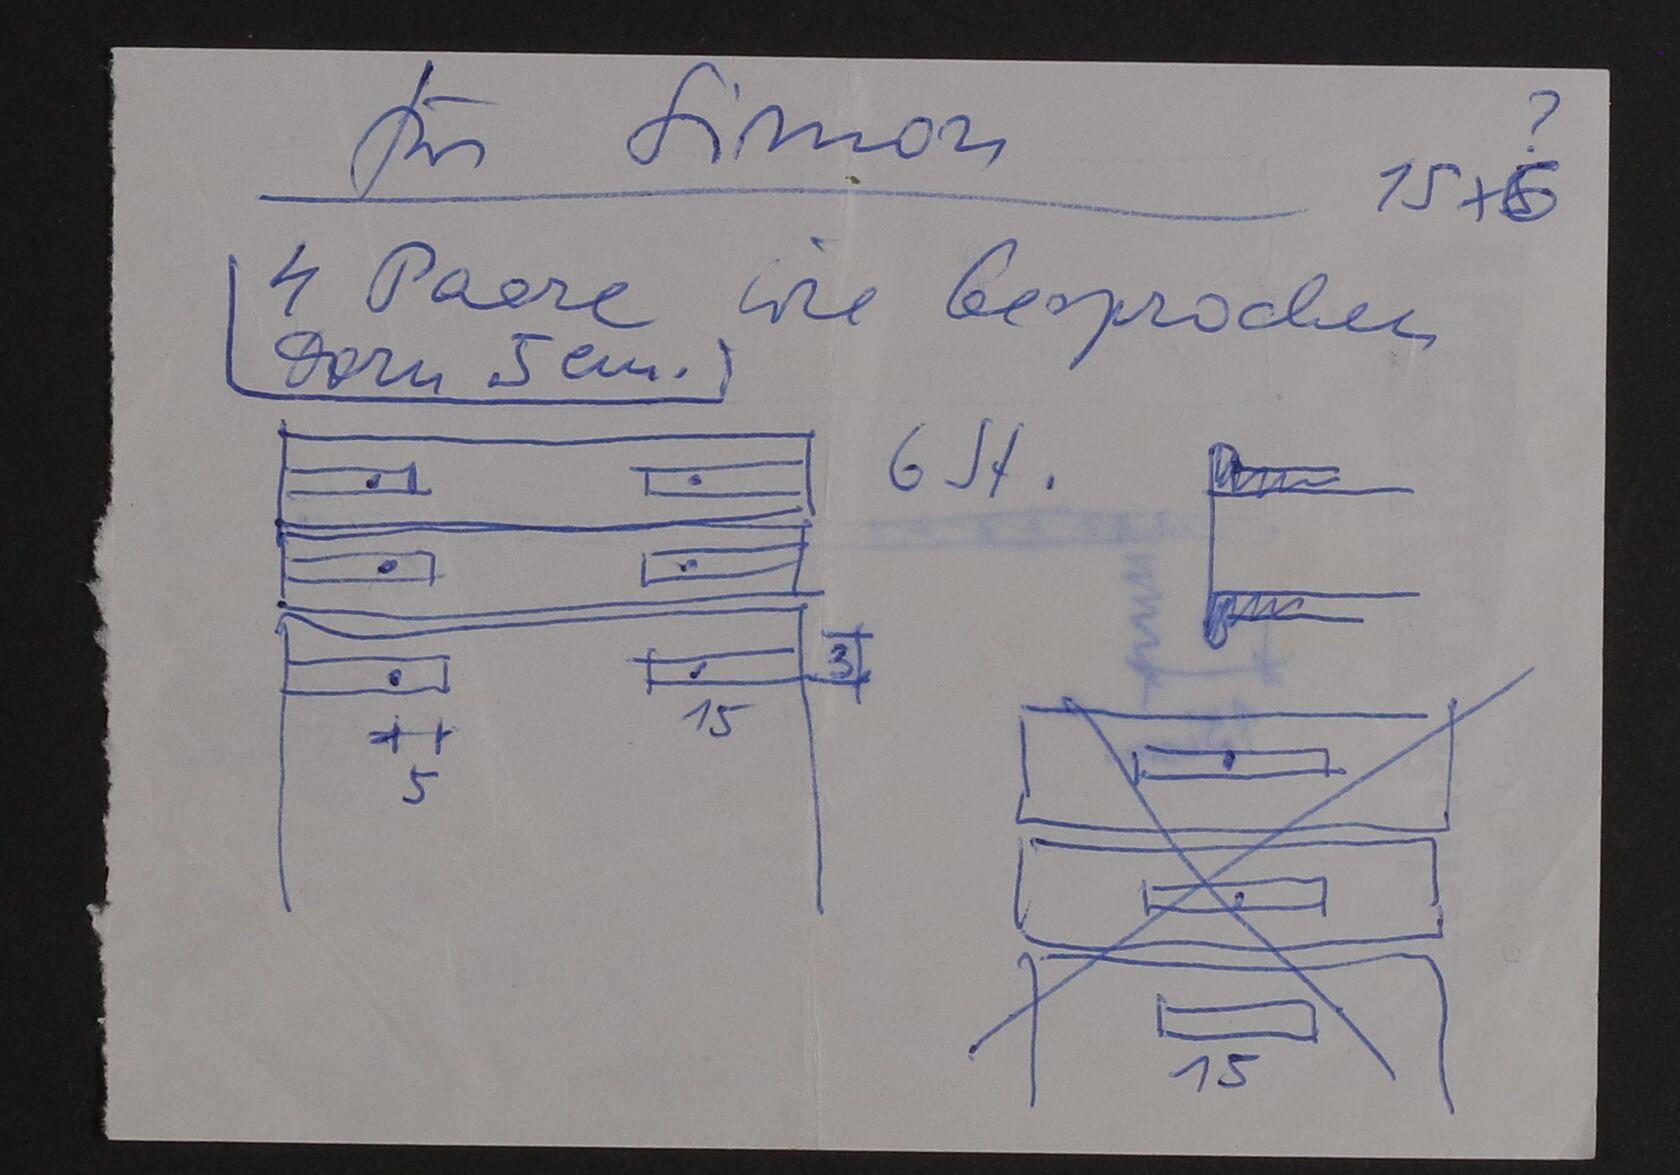 für Simon
?
15x5
4 Paare wie besprochen
Dorn 5 cm.
6 St.
3
15
5
15